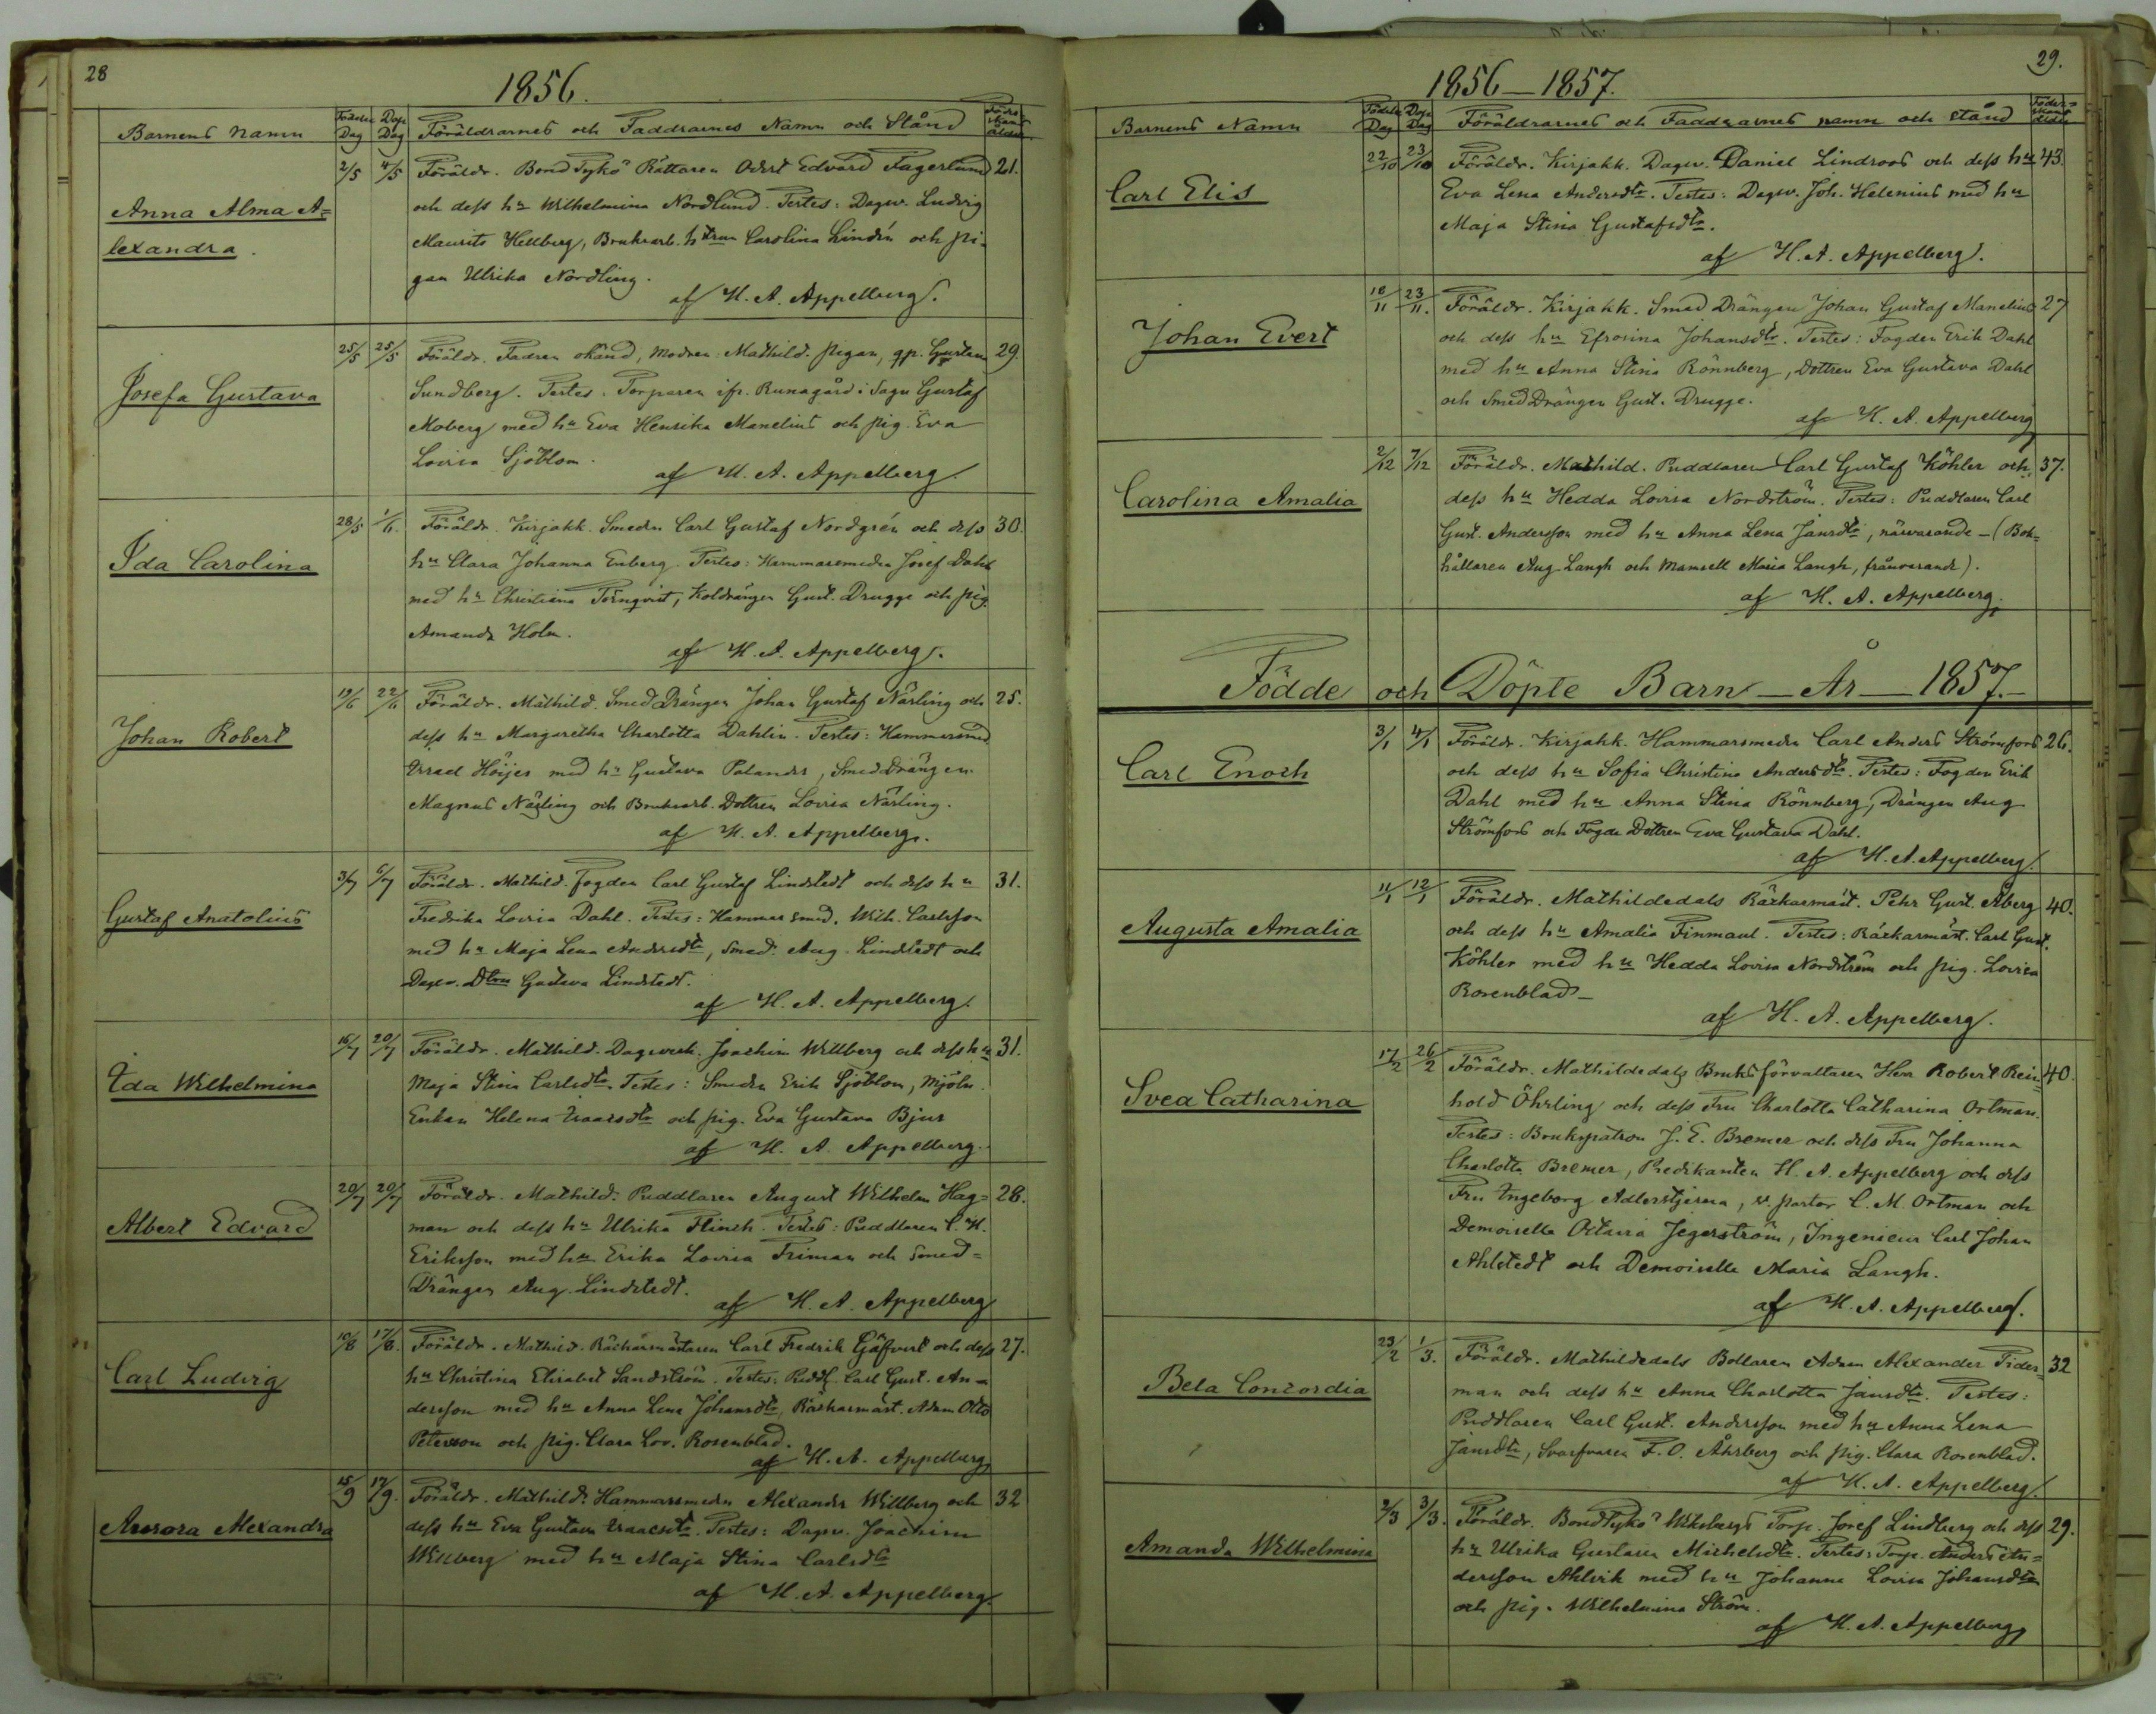 28
1856.
Barnens namn
Födelse Dag
Dop Dag
Föräldrarnes och Faddrarnes Namn och Stånd
Anna Alma A=
lexandra.
2/5 4/5 Föräldr. Bond Tykö Rättaren Odert Edvard Fagerlund 21.
och dess hu Wilhelmina Nordlund. Testes: Dagw. Ludvig
Maurits Hellberg, Bruksarb. htrun Carolina Lindén och pi-
gan Ulrika Nordling.
af H. A. Appelberg.
Josefa Gustava
25/5 25/5 Föräldr. Fadren okänd, modren: Mathild. pigan, gp. Gustava 29.
Sundberg. Testes: Torparen ifr. Runagård i Sagu Gustaf
Moberg med hu Eva Henrika Manelius och pig. Eva
Lovisa Sjöblom.
af H. A. Appelberg.
Ida Carolina
28/5 1/6. Föräldr. Kirjakk. Smeden Carl Gustaf Nordgrén och dess 30.
hu Clara Johanna Enberg. Testes: Hammarsmeden Josef Dahl
med hu Christiana Törnqvist, Koldrängen Gust. Drugge och pig.
Amanda Holm.
af H. A. Appelberg.
Johan Robert
19/6 22/6 Föräldr. Mathild. SmedDrängen Johan Gustaf Näsling och 25.
dess hu Margaretha Charlotta Dahlin. Testes: Hammarsmed
Israel Höijer med hu Gustava Palander, SmedDrängen
Magnus Näsling och Bruksarb. Dottren Lovisa Näsling.
af H. A. Appelberg.
Gustaf Anatolius
3/7 6/7 Föräldr. Mathild. Fogden Carl Gustaf Lindstedt och dess hu 31.
Fredrika Lovisa Dahl. Testes: Hammarsmed. Wilh. Carlsson
med hu Maja Lena Andersdtr, Smed. Aug. Lindstedt och
Dagw. Dtren Gustava Lindstedt.
af H. A. Appelberg.
Ida Wilhelmina
16/7 20/7 Föräldr. Mathild. Dagwerk. Joachim Willberg och dess hu 31.
Maja Stina Carlsdtr. Testes: Smeden Erik Sjöblom, Mjöln.
Enkan Helena Isaacsdtr och pig. Eva Gustava Bjur
af H. A. Appelberg.
Albert Edvard
20/7 20/7 Föräldr. Mathild. Puddlaren August Wilhelm Hag= 28.
man och dess hu Ulrika Flinck. Testes: Puddlaren C. H.
Eriksson med hu Erika Lovisa Friman och Smed=
Drängen Aug. Lindstedt.
af H. A. Appelberg
Carl Ludvig
10/8 17/8. Föräldr. Mathild. Räckarmästaren Carl Fredrik Gäfvert och dess 27.
hu Christina Elisabet Sandström. Testes: Puddl. Carl Gust. An=
dersson med hu Anna Lena Johansdtr, Räckarmäst. Adam Otto
Peterson och pig. Clara Lov. Rosenblad.
af H. A. Appelberg
Aurora Alexandra
15/9 17/9. Föräldr. Mathild. Hammarsmeden Alexander Willberg och 32
dess hu Eva Gustava Isaacsdtr. Testes: Dagw. Joachim
Willberg med hu Maja Stina Carlsdtr
af H. A. Appelberg.
29.
1856—1857.
Barnens Namn
Födelse Dag
Dop Dag
Föräldrarnes och Faddrarnes namn och stånd
Carl Elis
22/10 23/10 Föräldr. Kirjakk. Dagw. Daniel Lindroos och dess hu 43.
Eva Lena Andersdtr. Testes: Dagw. Joh. Helenius med hu
Maja Stina Gustafsdtr.
af H. A. Appelberg.
Johan Evert
18/11 23/11. Föräldr. Kirjakk. Smed Drängen Johan Gustaf Manelius 27
och dess hu Efrosina Johansdtr. Testes: Fogden Erik Dahl
med hu Anna Stina Rönnberg, Dottren Eva Gustava Dahl
och SmedDrängen Gust. Drugge.
af H. A. Appelberg
Carolina Amalia
2/12 7/12 Föräldr. Mathild. Puddlaren Carl Gustaf Köhler och 37.
dess hu Hedda Lovisa Nordström. Testes: Puddlaren Carl
Gust. Andersson med hu Anna Lena Jansdtr, närvarande – (Bok=
hållaren Aug. Langh och Mamsell Maria Langh, frånvarande).
af H. A. Appelberg.
Födde och Döpte Barn — År — 1857.—
Carl Enoch
3/1 4/1 Föräldr. Kirjakk. Hammarsmeden Carl Anders Strömfors 26.
och dess hu Sofia Christina Andersdtr. Testes: Fogden Erik
Dahl med hu Anna Stina Rönnberg, Drängen Aug
Strömfors och Fogde Dottren Eva Gustava Dahl.
af H. A. Appelberg.
Augusta Amalia
11/1 12/1 Föräldr. Mathildedals Räckarmäst. Pehr Gust. Åberg 40.
och dess hu Amalia Finmaul. Testes: Räckarmäst. Carl Gust.
Köhler med hu Hedda Lovisa Nordström och pig. Lovisa
Rosenblad –
af H. A. Appelberg.
Svea Catharina
17/2 26/2 Föräldr. Mathildedals Bruksförvaltaren Herr Robert Rein= 40.
hold Öhrling och dess Fru Charlotta Catharina Ortman.
Testes: Brukspatron J. E. Bremer och dess Fru Johanna
Charlotta Bremer, Predikanten H. A. Appelberg och dess
Fru Ingeborg Adlerstjerna, v. pastor C. M. Ortman och
Demoiselle Octavia Jegerström, Ingenieur Carl Johan
Ahlstedt och Demoiselle Maria Langh.
af H. A. Appelberg.
Beta Concordia
23/2 1/3. Föräldr. Mathildedals Bollaren Adam Alexander Tider= 32
man och dess hu Anna Charlotta Jansdtr. Testes:
Puddlaren Carl Gust. Andersson med hu Anna Lena
Jansdtr, Svarfvaren F. O. Åhrberg och pig. Clara Rosenblad.
af H. A. Appelberg.
Amanda Wilhelmina
2/3 3/3. Föräldr. BondTykö Wiksbergs Torp. Josef Lindberg och dess 29.
hu Ulrika Gustava Michelsdtr. Testes: Torp. Anders An=
dersson Ahlvik med hu Johanna Lovisa Johansdtr
och pig. Wilhelmina Ström.
af H. A. Appelberg